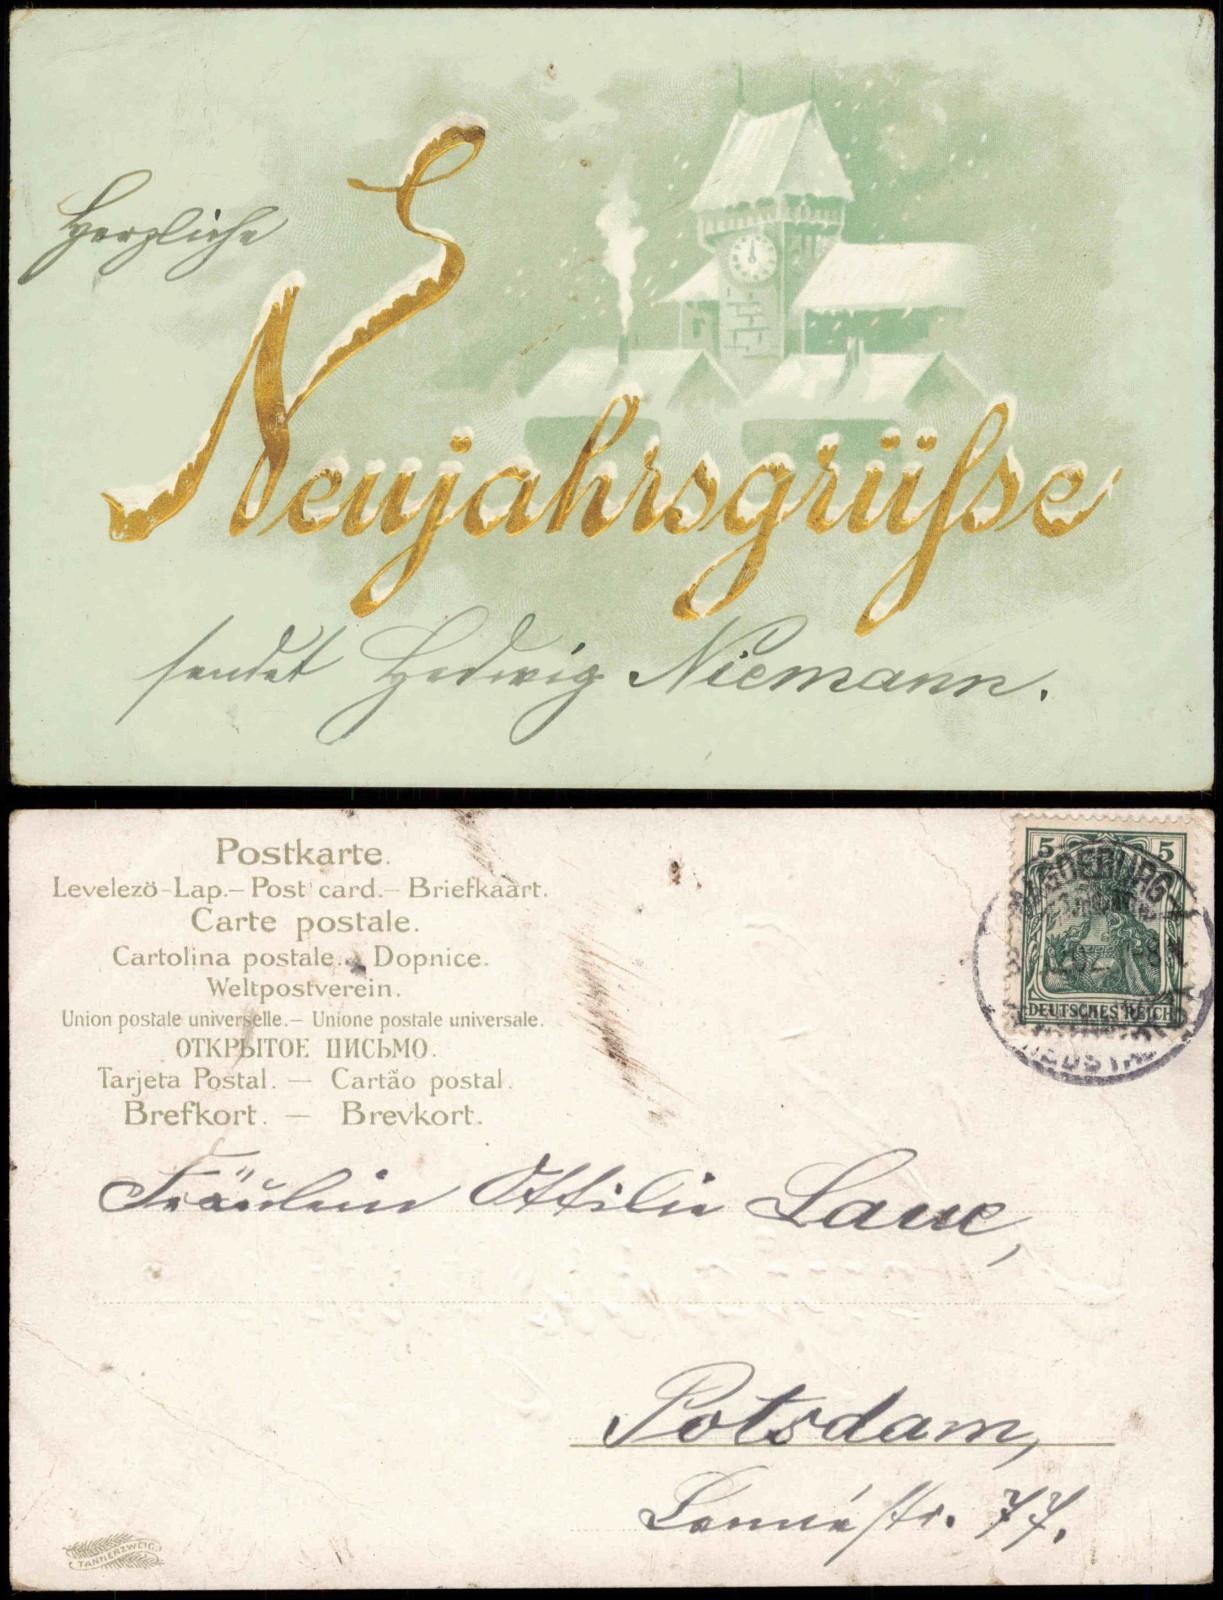 Herzliche
Neujahrsgrüſse
sendet Hedwig Niemann.
Postkarte.
Levelezö-Lap.– Post card.– Briefkaart.
Carte postale.
Cartolina postale. – Dopnice.
Weltpostverein.
Union postale universelle.– Unione postale universale.
ОТКРЫТОЕ ПИСЬМО.
Tarjeta Postal. — Cartão postal.
Brefkort. — Brevkort.
5 5
DEUTSCHES REICH
MAGDEBURG
NEUSTADT
Fräulein Ottilie Laue,
Potsdam,
Lennéstr. 77.
TANNERZWEIG